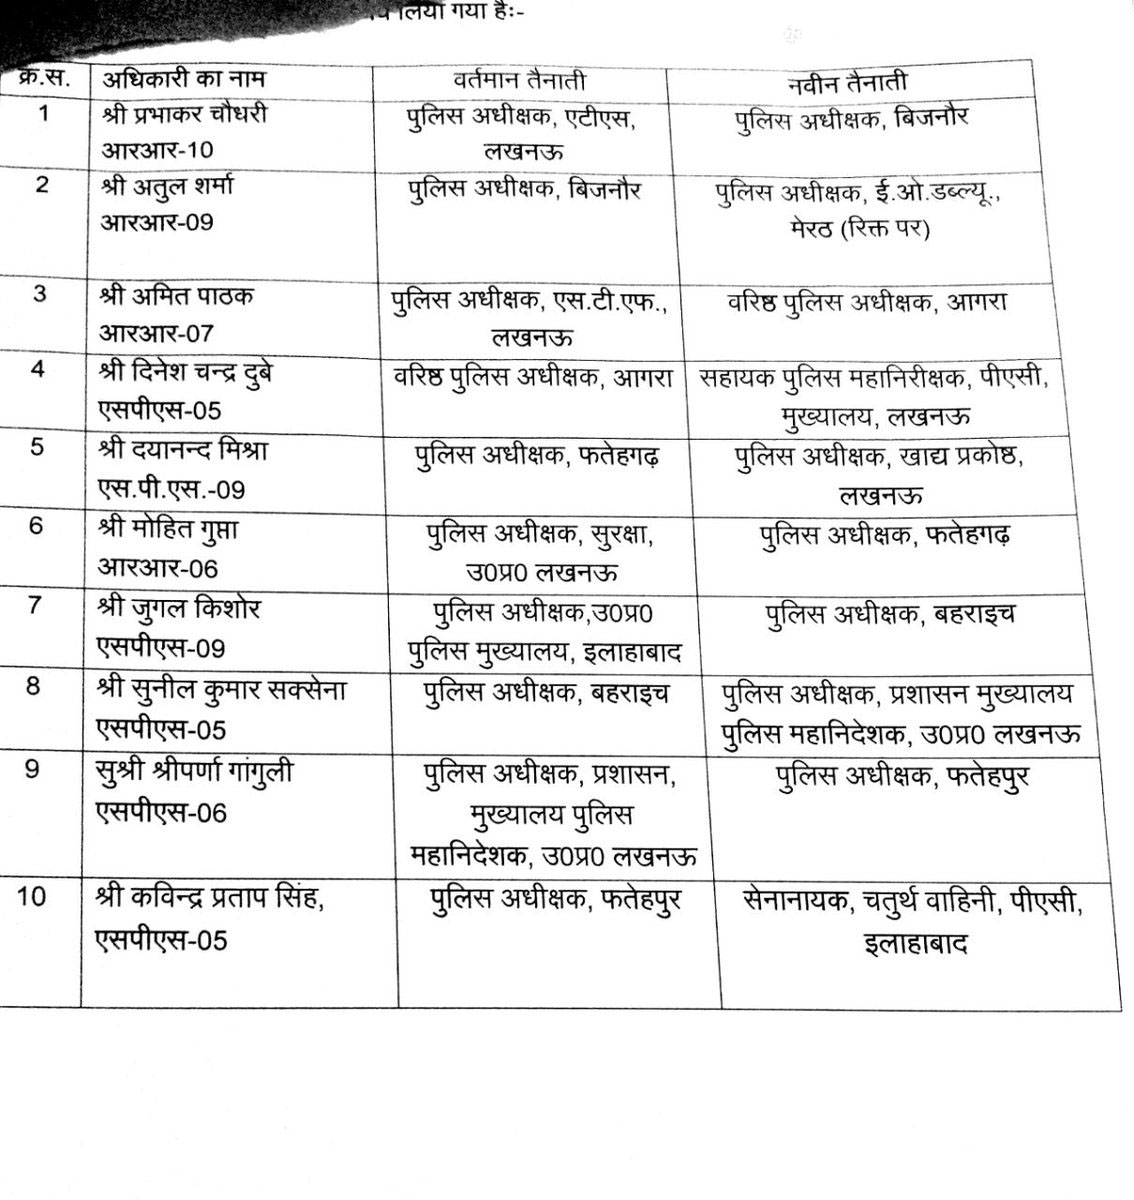 लिया गया है:-
क्र.स. अधिकारी का नाम वर्तमान तैनाती नवीन तैनाती
1 श्री प्रभाकर चौधरी पुलिस अधीक्षक, एटीएस, पुलिस अधीक्षक, बिजनौर
आरआर-10 लखनऊ
2 श्री अतुल शर्मा पुलिस अधीक्षक, बिजनौर पुलिस अधीक्षक, ई.ओ.डब्ल्यू.,
आरआर-09 मेरठ (रिक्त पर)
3 श्री अमित पाठक पुलिस अधीक्षक, एस.टी.एफ., वरिष्ठ पुलिस अधीक्षक, आगरा
आरआर-07 लखनऊ
4 श्री दिनेश चन्द्र दुबे वरिष्ठ पुलिस अधीक्षक, आगरा सहायक पुलिस महानिरीक्षक, पीएसी,
एसपीएस-05 मुख्यालय, लखनऊ
5 श्री दयानन्द मिश्रा पुलिस अधीक्षक, फतेहगढ़ पुलिस अधीक्षक, खाद्य प्रकोष्ठ,
एस.पी.एस.-09 लखनऊ
6 श्री मोहित गुप्ता पुलिस अधीक्षक, सुरक्षा, पुलिस अधीक्षक, फतेहगढ़
आरआर-06 उ0प्र0 लखनऊ
7 श्री जुगल किशोर पुलिस अधीक्षक,उ0प्र0 पुलिस अधीक्षक, बहराइच
एसपीएस-09 पुलिस मुख्यालय, इलाहाबाद
8 श्री सुनील कुमार सक्सेना पुलिस अधीक्षक, बहराइच पुलिस अधीक्षक, प्रशासन मुख्यालय
एसपीएस-05 पुलिस महानिदेशक, उ0प्र0 लखनऊ
9 सुश्री श्रीपर्णा गांगुली पुलिस अधीक्षक, प्रशासन, पुलिस अधीक्षक, फतेहपुर
एसपीएस-06 मुख्यालय पुलिस
महानिदेशक, उ0प्र0 लखनऊ
10 श्री कविन्द्र प्रताप सिंह, पुलिस अधीक्षक, फतेहपुर सेनानायक, चतुर्थ वाहिनी, पीएसी,
एसपीएस-05 इलाहाबाद